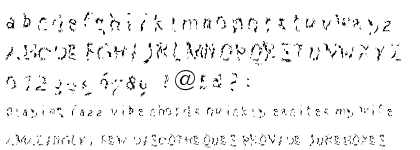 abcdefghijklmnopqrstuvwxyz
ABCDEFGHIJKLMNOPQRSTUVWXYZ
0123456789 !@$&?:
playing jazz vibe chords quickly excites my wife
AMAZINGLY, FEW DISCOTHEQUES PROVIDE JUKEBOXES